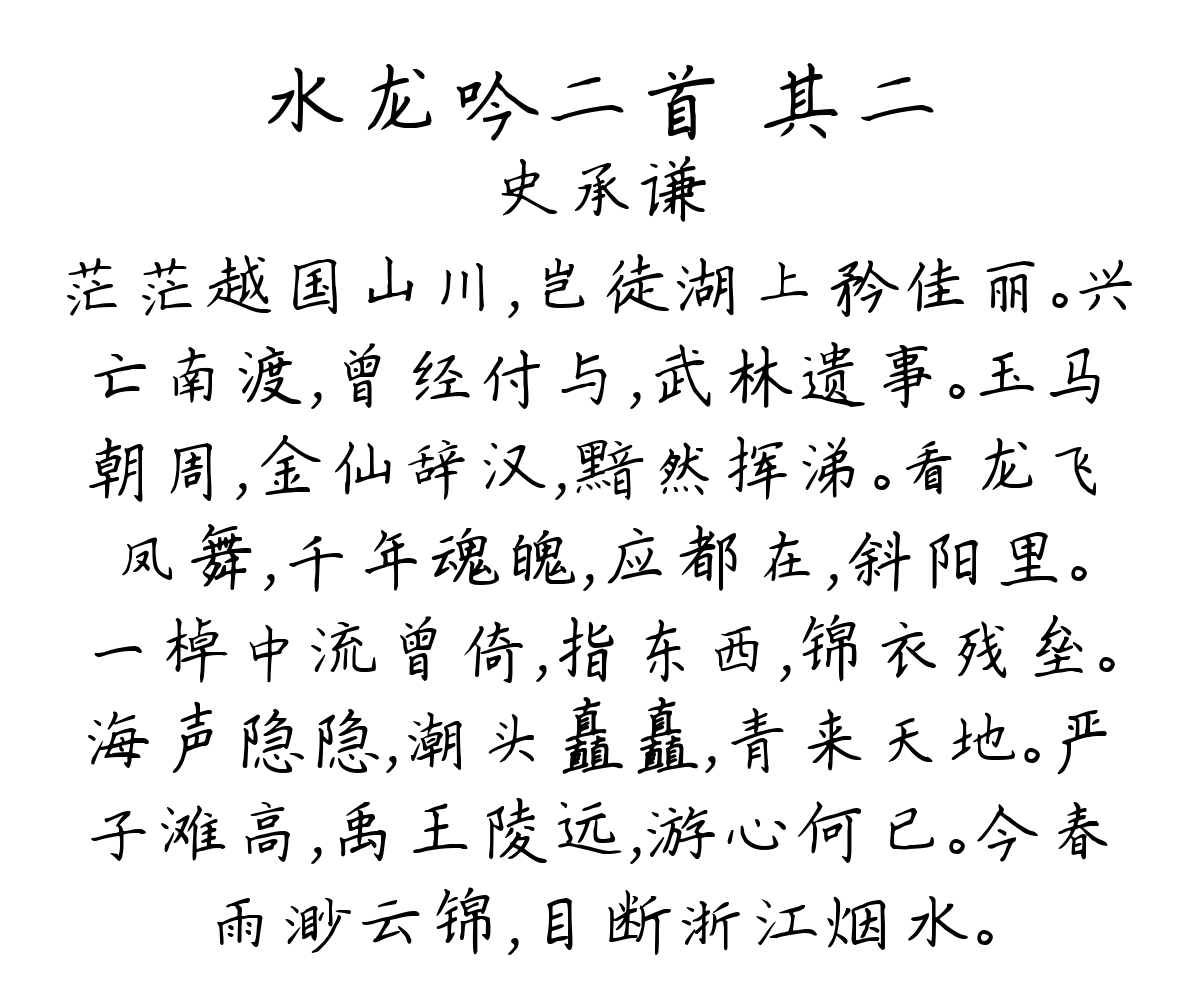 水龙吟二首 其二
史承谦
茫茫越国山川,岂徒湖上矜佳丽。兴
亡南渡,曾经付与,武林遗事。玉马
朝周,金仙辞汉,黯然挥涕。看龙飞
凤舞,千年魂魄,应都在,斜阳里。
一棹中流曾倚,指东西,锦衣残垒。
海声隐隐,潮头矗矗,青来天地。严
子滩高,禹王陵远,游心何已。今春
雨渺云锦,目断浙江烟水。